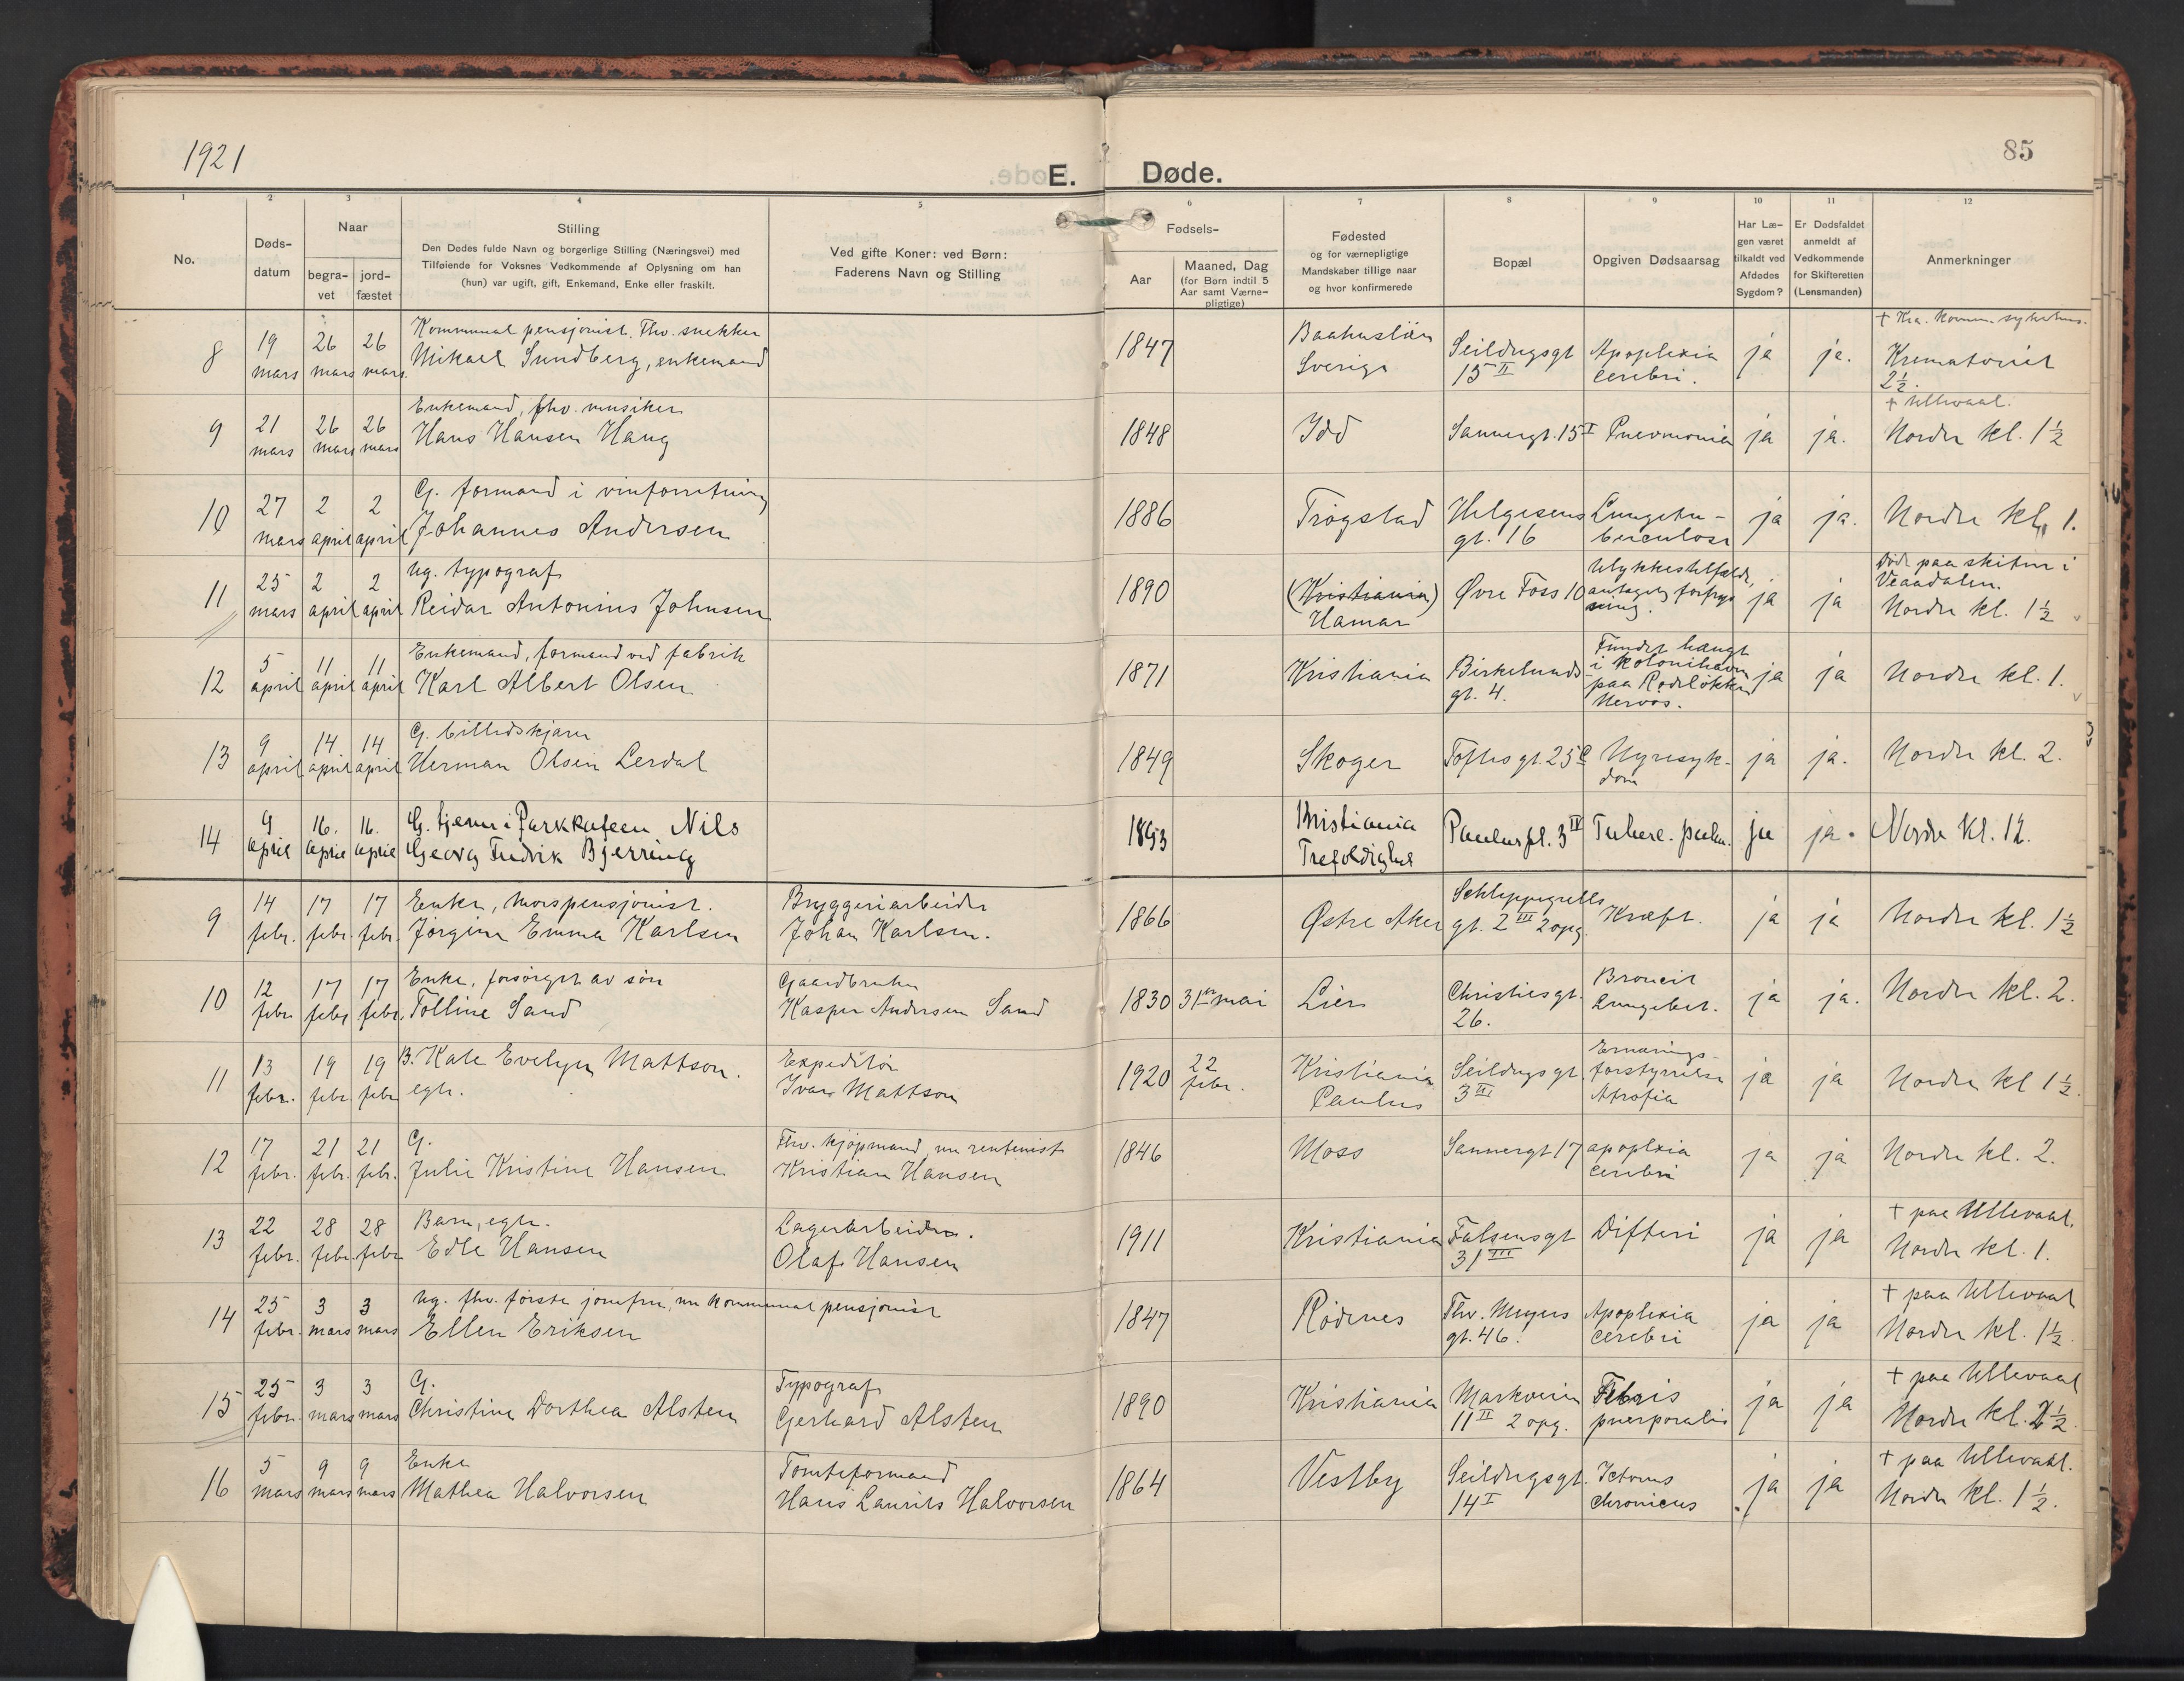 1921
85
E. Døde.
1 2 3 4 5 6 7 8 9 10 11 12
No.
Døds-
datum
Naar
begra-
vet
jord-
fæstet
Stilling
Den Dødes fulde Navn og borgerlige Stilling (Næringsvei) med
Tilføiende for Voksnes Vedkommende af Oplysning om han
(hun) var ugift, gift, Enkemand, Enke eller fraskilt.
Ved gifte Koner: ved Børn:
Faderens Navn og Stilling
Fødsels-
Aar
Maaned, Dag
(for Børn indtil 5
Aar samt Værne-
pligtige)
Fødested
og for værnepligtige
Mandskaber tillige naar
og hvor konfirmerede
Bopæl
Opgiven Dødsaarsag
Har Læ-
gen været
tilkaldt ved
Afdødes
Sygdom?
Er Dødsfaldet
anmeldt af
Vedkommende
for Skifteretten
(Lensmanden)
Anmerkninger
8
19
mars
26
mars
26
mars.
Kommunal pensjonist. Fhv. snekker
Mikael Sundberg, enkemand
1847
Baahuslän
Sverige
Seildugsgt
15 II
Apoplexia
cerebri.
ja
ja.
+ Kra. komm. sykehus.
Krematoriet
2½.
9
21
mars
26
mars
26
mars
Enkemand, fhv. musiker
Hans Hansen Haug
1848
Idd
Sannergt. 15 I
Pnevmonia
ja
ja.
+ Ullevaal.
Nordre kl. 1½
10
27
mars
2
april
2
april
G. formand i vinforretning
Johannes Andersen
1886
Trøgstad
Helgesens
gt. 16
Lungetu-
berculose
ja
ja.
Nordre kl. 1.
11
25
mars
2
april
2
april
Ug. typograf
Reidar Antonius Johnsen
1890
(Kristiania)
Hamar
Øvre Foss 10
Ulykkestilfælde,
antagelig forfrys
ning.
ja
ja
Død paa skitur i
Veaadalen.
Nordre kl. 1½
12
5
april
11
april
11
april
Enkemand, formand ved fabrik
Karl Albert Olsen
1871
Kristiania
Birkelunds-
gt. 4.
Fundet hængt
i kolonihaven
paa Rodeløkken
Nervøs.
ja
ja
Nordre kl. 1.
13
9
april
14
april
14
april
G. billedskjærer
Herman Olsen Lerdal
1849
Skoger
Toftes gt. 25 c
Nyresyk-
dom
ja
ja.
Nordre kl. 2.
14
9
april
16.
april
16.
april
G. tjener i Parkkafeen Nils
Georg Fredrik Bjerring
1893
Kristiania
Trefoldighed
Pauluspl. 3 IV
Tuberc. pulm.
ja
ja.
Nordre kl. 12.
9
14
febr.
17
febr.
17
febr.
Enke, morspensjonist.
Jørgine Emma Karlsen
Bryggeriarbeider
Johan Karlsen.
1866
Østre Aker
Schleppegrells
gt. 2 III 2 opg.
Kræft.
ja
ja
Nordre kl. 1½
10
12
febr.
17
febr
17
febr.
Enke, forsørget av søn
Tolline Sand
Gaardbruker
Kasper Andersen Sand
1830
31te mai
Lier
Christiesgt.
26.
Broncit
Lungebet.
ja
ja.
Nordre kl. 2.
11
13
febr.
19
febr
19
febr
B. Kate Evelyn Mattson.
egte.
Expeditør
Ivar Mattson
1920
22
febr.
Kristiania
Paulus
Seildugsgt.
3 III
Ernærings-
forstyrrelse
Atrofia
ja
ja
Nordre kl 1½.
12
17
febr.
21
febr.
21
febr.
G.
Julie Kristine Hansen
Fhv. kjøpmand, nu rentenist
Kristian Hansen
1846
Moss
Sannergt 17
apoplexia
cerebri
ja
ja
Nordre kl. 2.
13
22
febr.
28
febr.
28
febr
Barn, egte.
Edle Hansen
Lagerarbeider.
Olaf Hansen
1911
Kristiania
Falsensgt
31 III
Difteri
ja
ja
+ paa Ullevaal.
Nordre kl. 1.
14
25
febr.
3
mars
3
mars
Ug. fhv. første jomfru, nu kommunal pensjonist
Ellen Eriksen
1847
Rødenes
Thv. Meyers
gt. 46.
Apoplexia
cerebri
ja
ja
+ paa Ullevaal
Nordre kl. 1½.
15
25
febr.
3
mars
3
mars
G.
Christine Dorthea Alsten
Typograf
Gerhard Alsten
1890
Kristiania
Markveien
11 II 2 opg.
Febris
puerperalis
ja
ja
+ paa Ullevaal
Nordre kl. 2½.
16
5
mars
9
mars
9
mars
Enke
Mathea Halvorsen
Tomteformand
Hans Laurits Halvorsen
1864
Vestby
Seildugsgt.
14 I
Icterus
chronicus
ja
ja
+ paa Ullevaal.
Nordre kl. 1½.